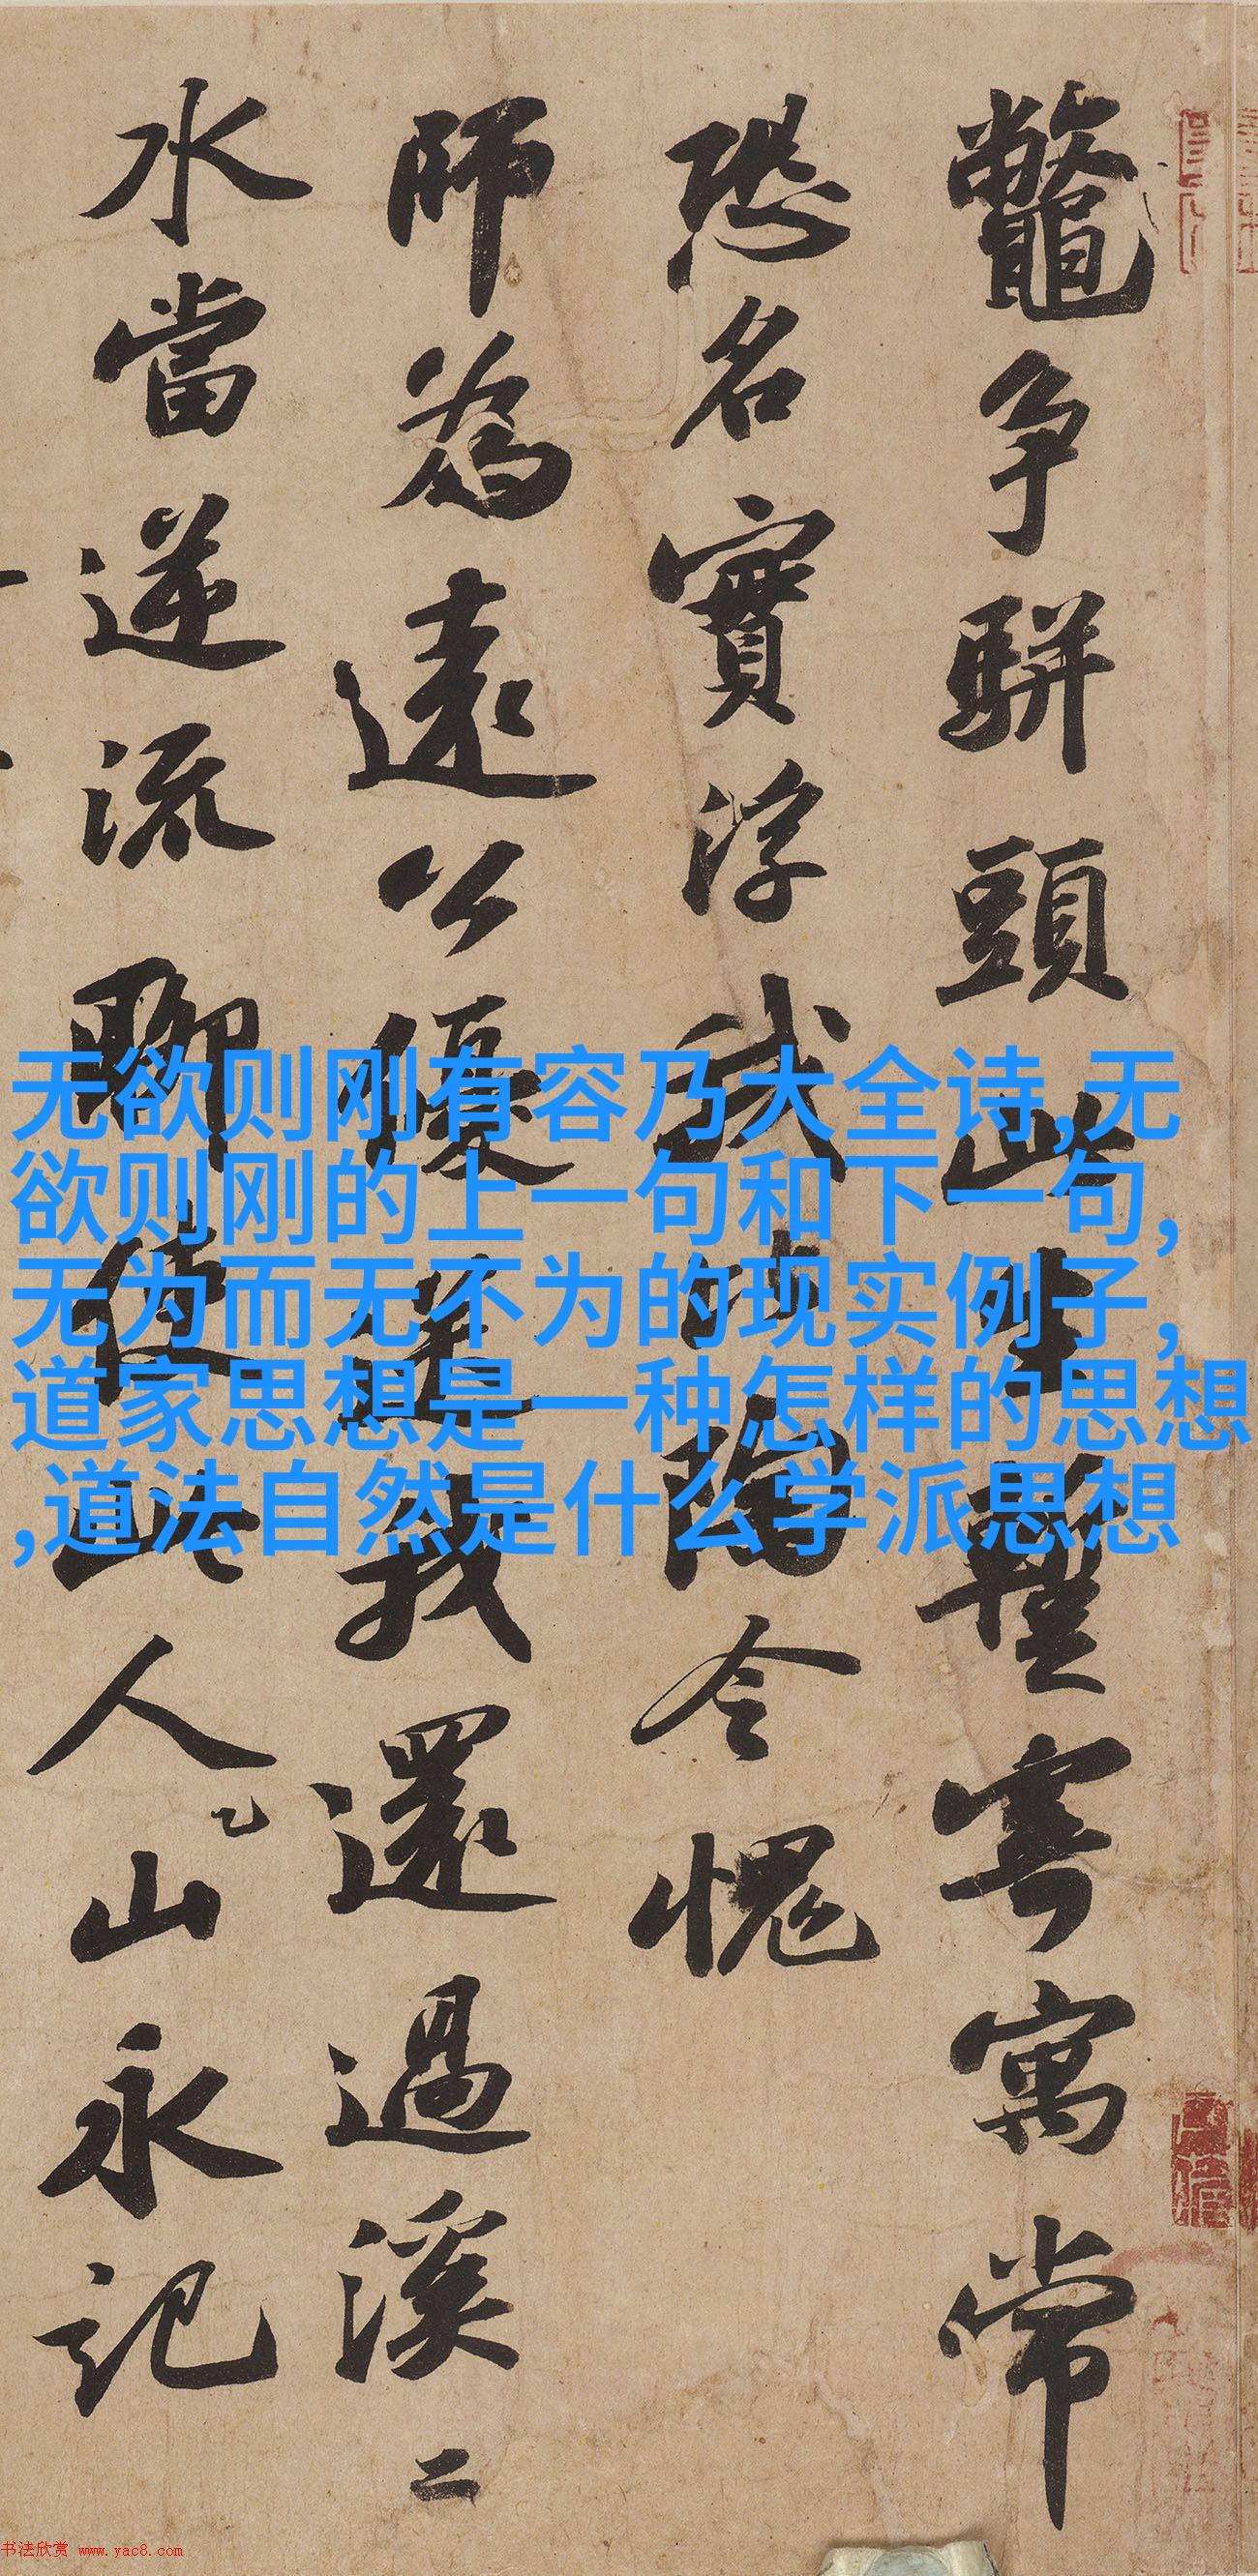 鼈争駢頭此生暫寄寓常
恐名實浮我比陶令愧
師為遠公優送我還過溪二
水當逆流聊使此人山永記
无欲则刚有容乃大全诗,无
欲则刚的上一句和下一句,
无为而无不为的现实例子,
道家思想是一种怎样的思想
,道法自然是什么学派思想
书法欣赏 www.yac8.com